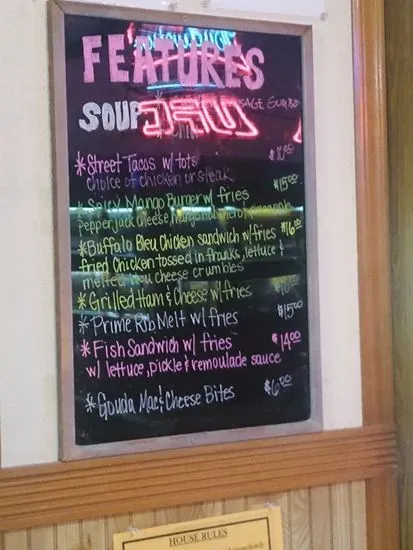 FEATURES
SOUP SAUSAGE GUMBO
*Street Tacos w/ tots $10.00
choice of chicken or steak
*Spicy Mango Burger w/ fries $15.00
pepperjack cheese, mango habanero pineapple
*Buffalo Bleu Chicken sandwich w/ fries $16.00
fried chicken tossed in franks, lettuce &
melted bleu cheese crumbles
*Grilled Ham & Cheese w/ fries
*Prime Rib Melt w/ fries $15.00
*Fish Sandwich w/ fries $14.00
w/ lettuce, pickle & remoulade sauce
*Gouda Mac & Cheese Bites $6.00
HOUSE RULES